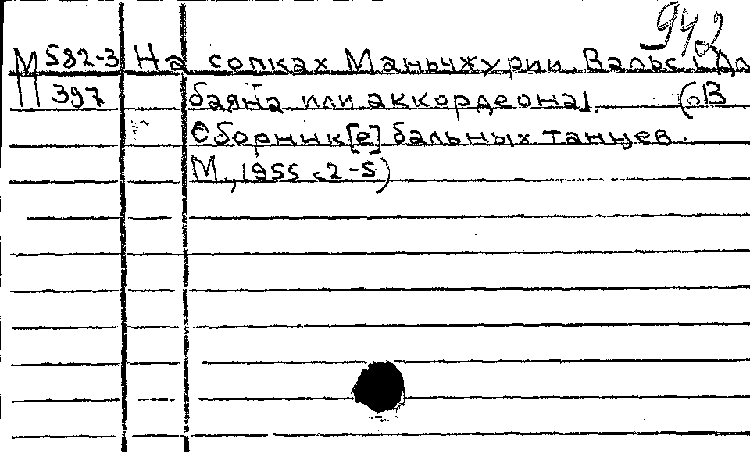 942
М 582-3 На сопках Маньчжурии. Вальс. [Дл
П 397 баяна или аккордеона]. (В
Сборник[е] бальных танцев.
М., 1955 с 2-5)